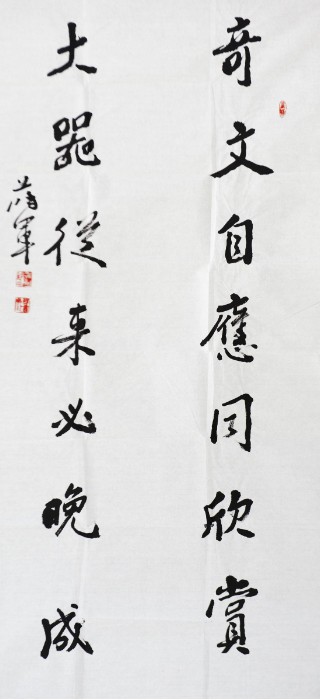 奇文自應同欣賞
大器從來必晚成
蔣軍